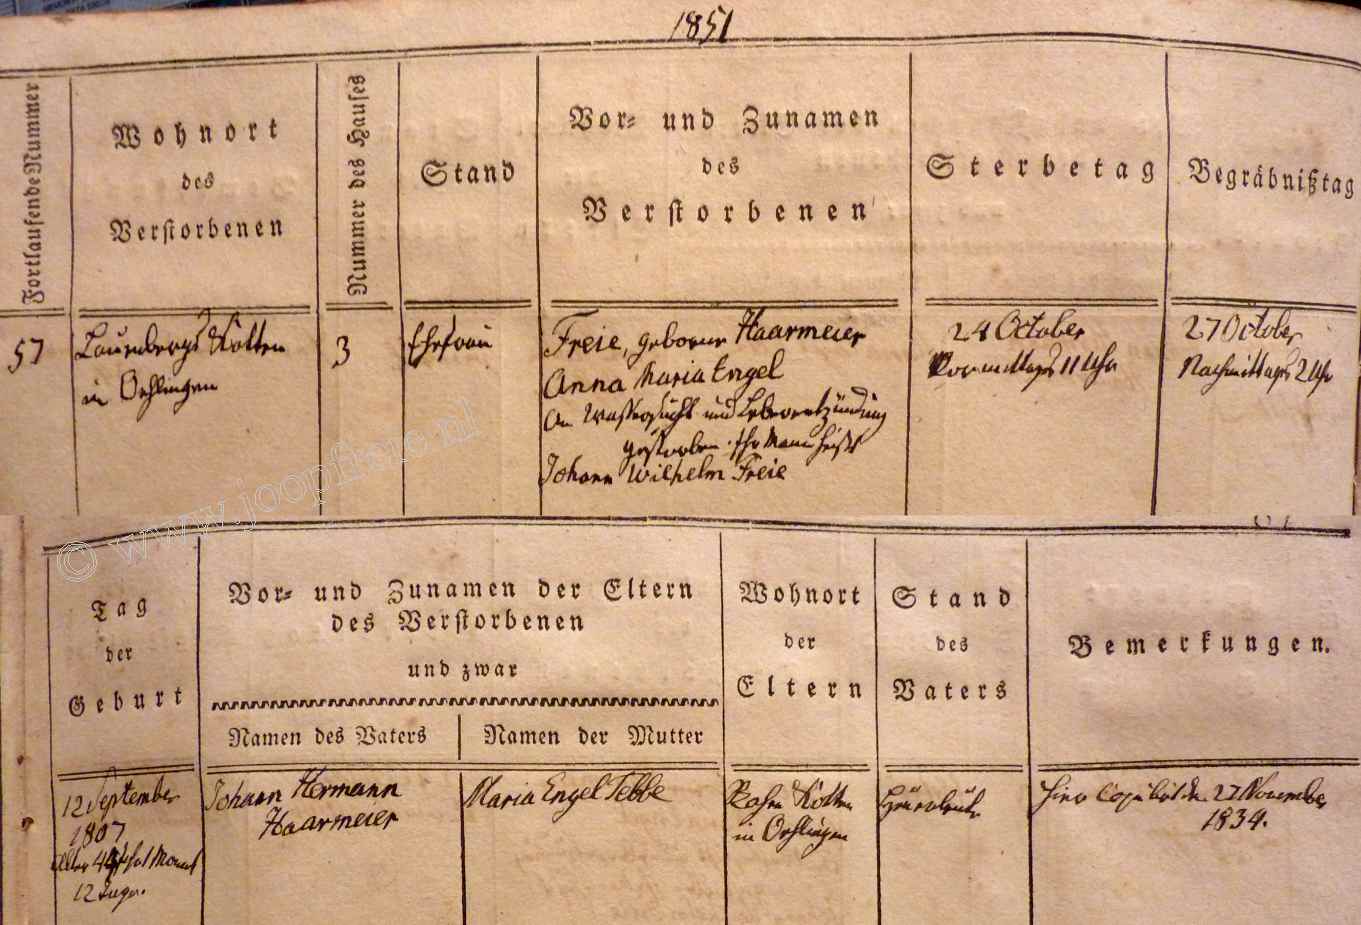 1851
Fortlaufende Nummer
Wohnort
des
Verstorbenen
Nummer des Hauses
Stand
Vor- und Zunamen
des
Verstorbenen
Sterbetag
Begräbnißtag
57
Laurenbergs Kotten
in Oehlingen
3
Ehefrau
Freie, geborne Haarmeier
Anna Maria Engel
An Wassersucht und Leberentzündung
gestorben. Ihr Mann heißt
Johann Wilhelm Freie
24 October
Vormittags 11 Uhr
27 October
Nachmittags 2 Uhr
© www.joopfreie.nl
Tag
der
Geburt
Vor- und Zunamen der Eltern
des Verstorbenen
und zwar
Namen des Vaters
Namen der Mutter
Wohnort
der
Eltern
Stand
des
Vaters
Bemerkungen.
12 September
1807
Alter 44 Jahr 1 Monat
12 Tage.
Johann Hermann
Haarmeier
Maria Engel Tebbe
Kotten
in Oehlingen
Heuerleute
Hier Copulirt den 27 November
1834.